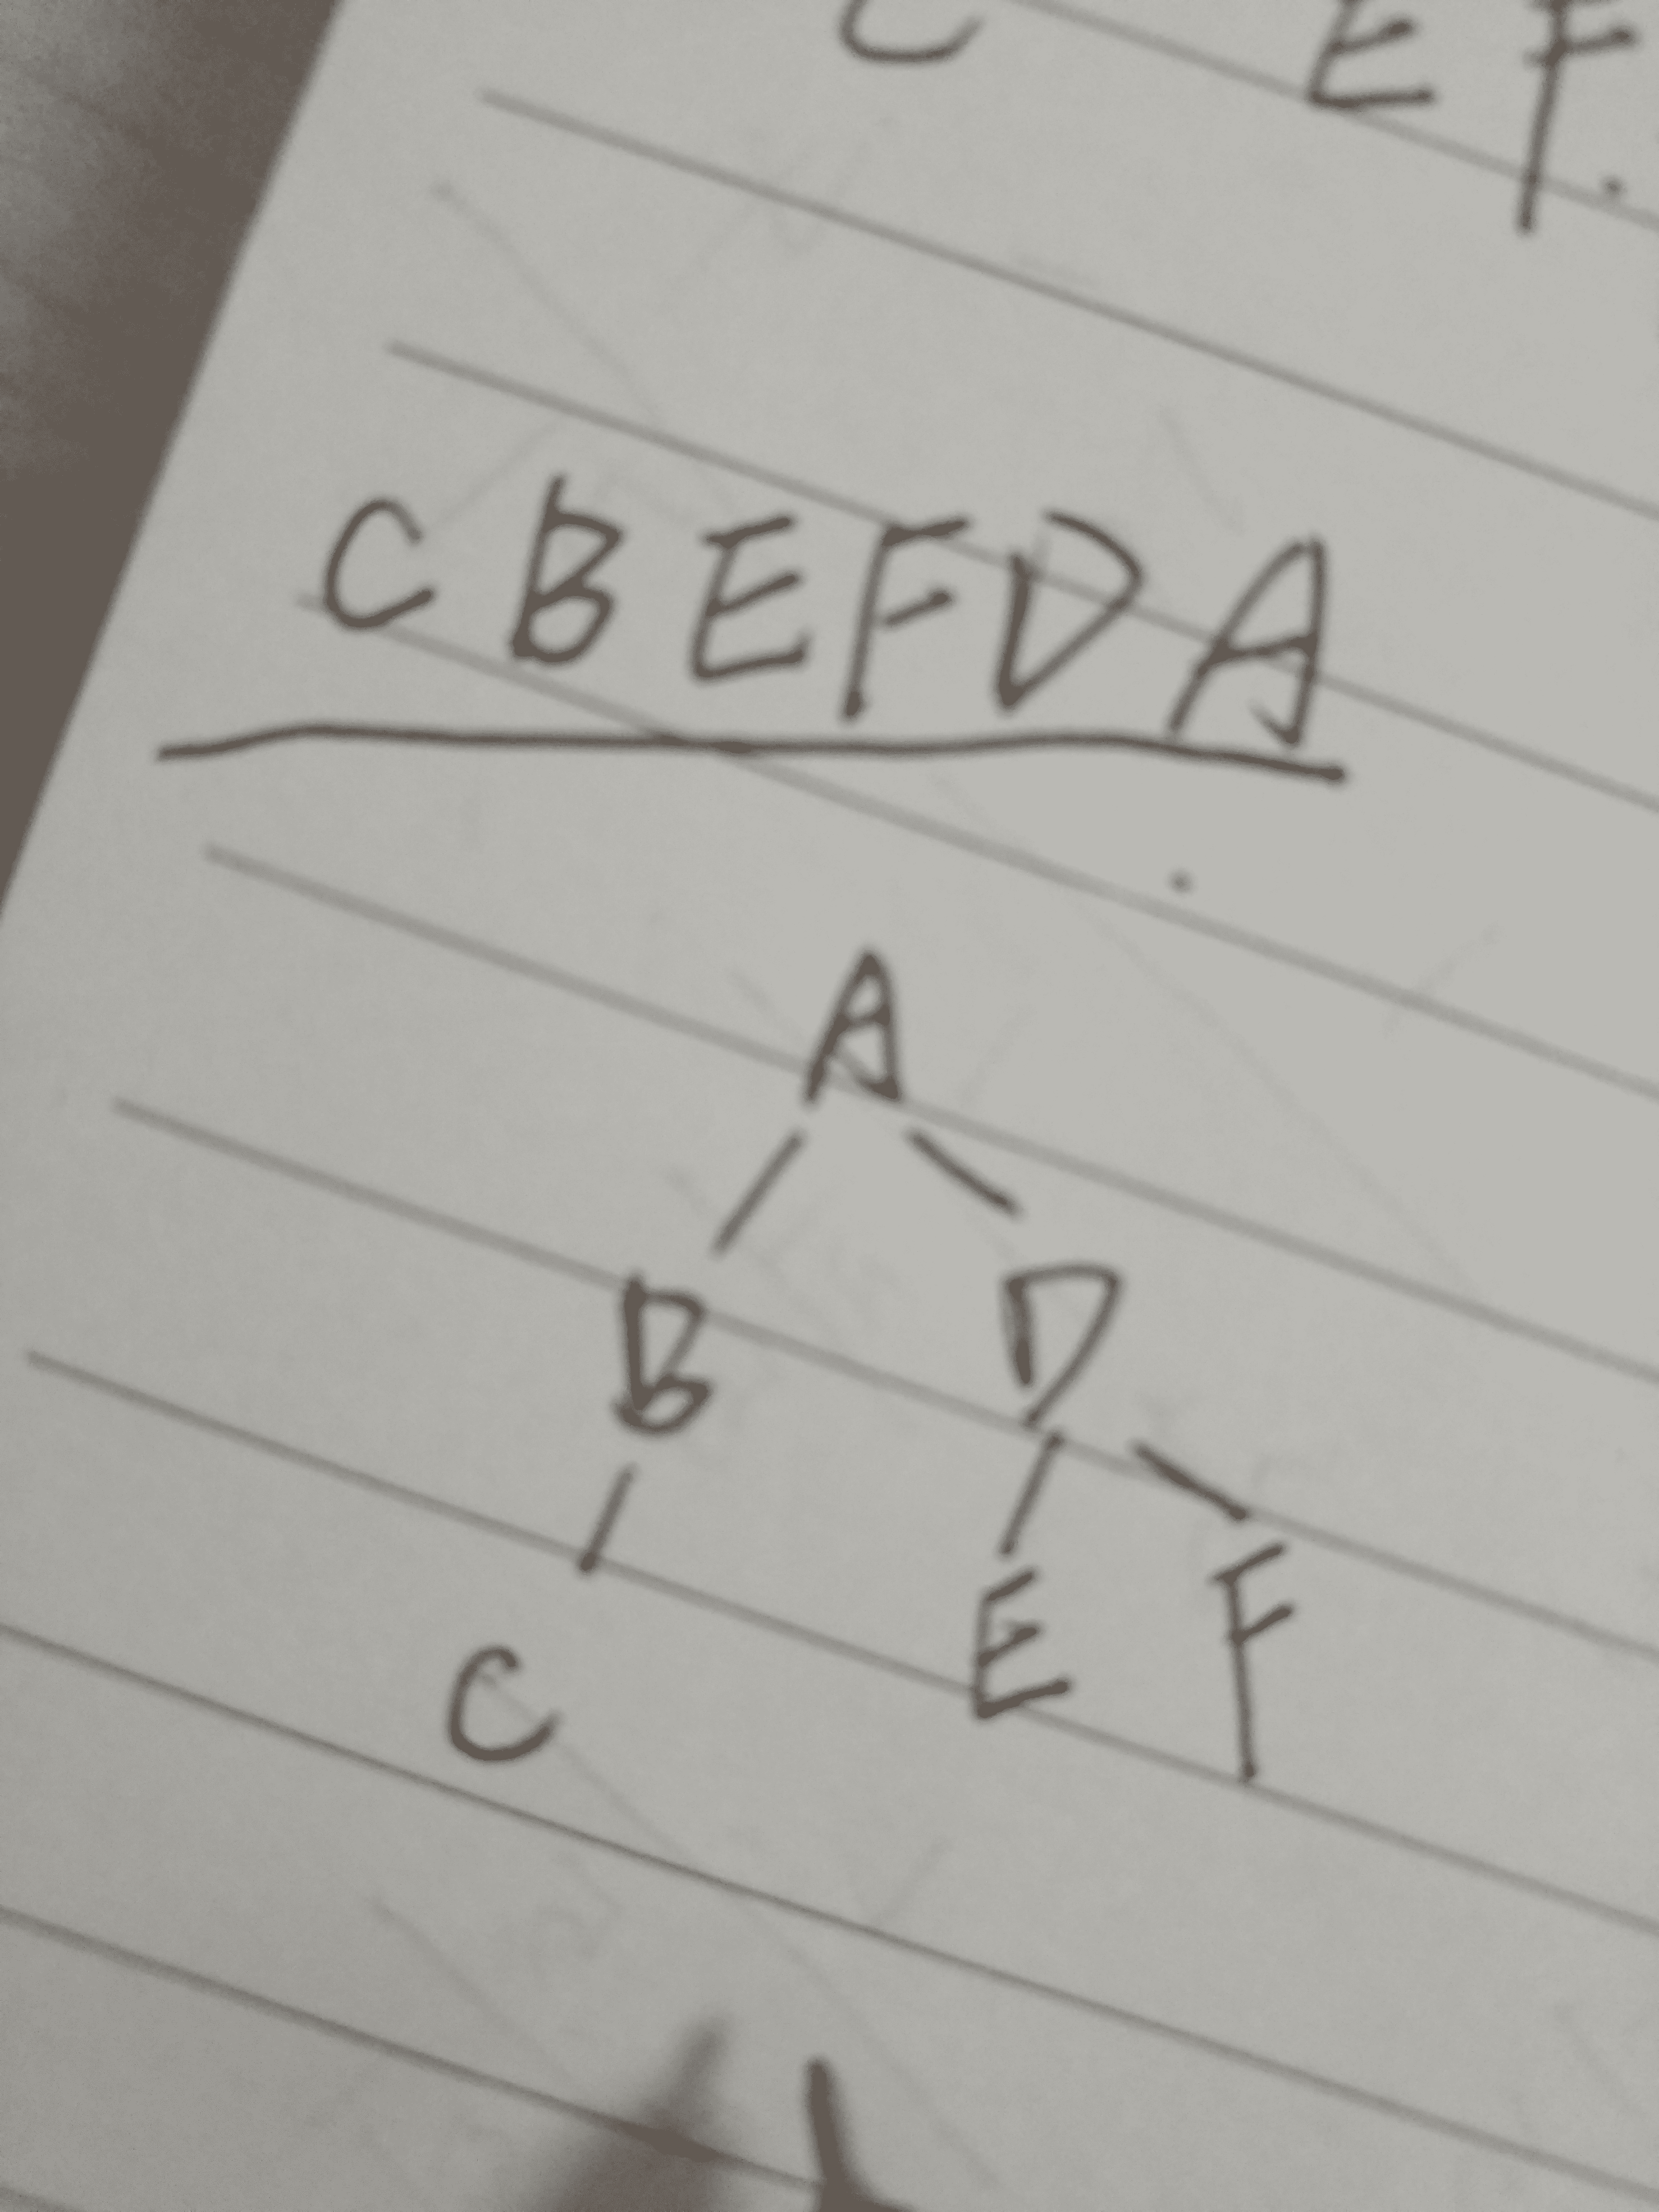 C E F.
C B E F D A
A
B D
C E F